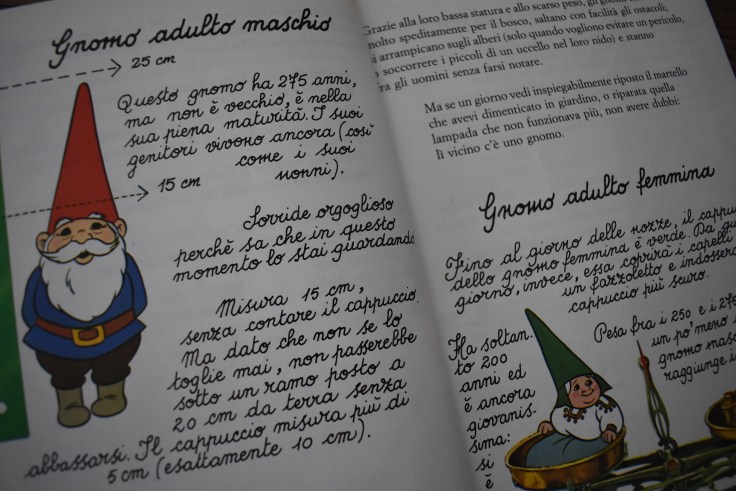 Gnomo adulto maschio
25 cm
Questo gnomo ha 275 anni,
ma non è vecchio, è nella
sua piena maturità. I suoi
genitori vivono ancora (così
come i suoi
nonni).
15 cm
Sorride orgoglioso
perchè sa che in questo
momento lo stai guardando.
Misura 15 cm,
senza contare il cappuccio.
Ma dato che non se lo
toglie mai, non passerebbe
sotto un ramo posto a
20 cm da terra senza
abbassarsi. Il cappuccio misura più di
5 cm (esattamente 10 cm).
Grazie alla loro bassa statura e allo scarso peso, gli gnomi
molto speditamente per il bosco, saltano con facilità gli ostacoli;
arrampicano sugli alberi (solo quando vogliono evitare un pericolo,
soccorrere i piccoli di un uccello nel loro nido) e stanno
gli uomini senza farsi notare.
Ma se un giorno vedi inspiegabilmente riposto il martello
che avevi dimenticato in giardino, o riparata quella
lampada che non funzionava più, non avere dubbi:
lì vicino c'è uno gnomo.
Gnomo adulto femmina
Fino al giorno delle nozze, il
dello gnomo femmina è verde. Da
giorno, invece, essa coprirà i capelli
un fazzoletto e
cappuccio più scuro.
Ha soltan-
to 200
anni ed
è ancora
giovanis-
sima:
si
è
Pesa fra i 250 e i
un po' meno
gnomo
raggiunge